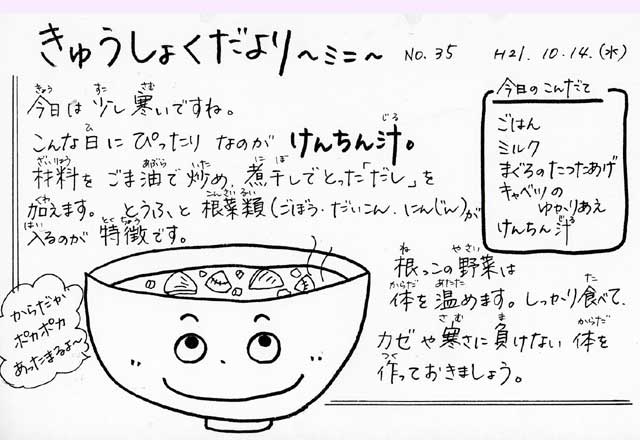 きゅうしょくだより～ミニ～ No. 35 H21. 10. 14. (水)
今日は少し寒いですね。
こんな日にぴったりなのがけんちん汁。
材料をごま油で炒め、煮干しでとった「だし」を
加えます。とうふ、と根菜類(ごぼう・だいこん・にんじん)が
入るのが特徴です。
今日のこんだて
ごはん
ミルク
まぐろのたつたあげ
キャベツの
ゆかりあえ
けんちん汁
根っこの野菜は
体を温めます。しっかり食べて、
カゼや寒さに負けない体を
作っておきましょう。
からだが
ポカポカ
あったまるよ～